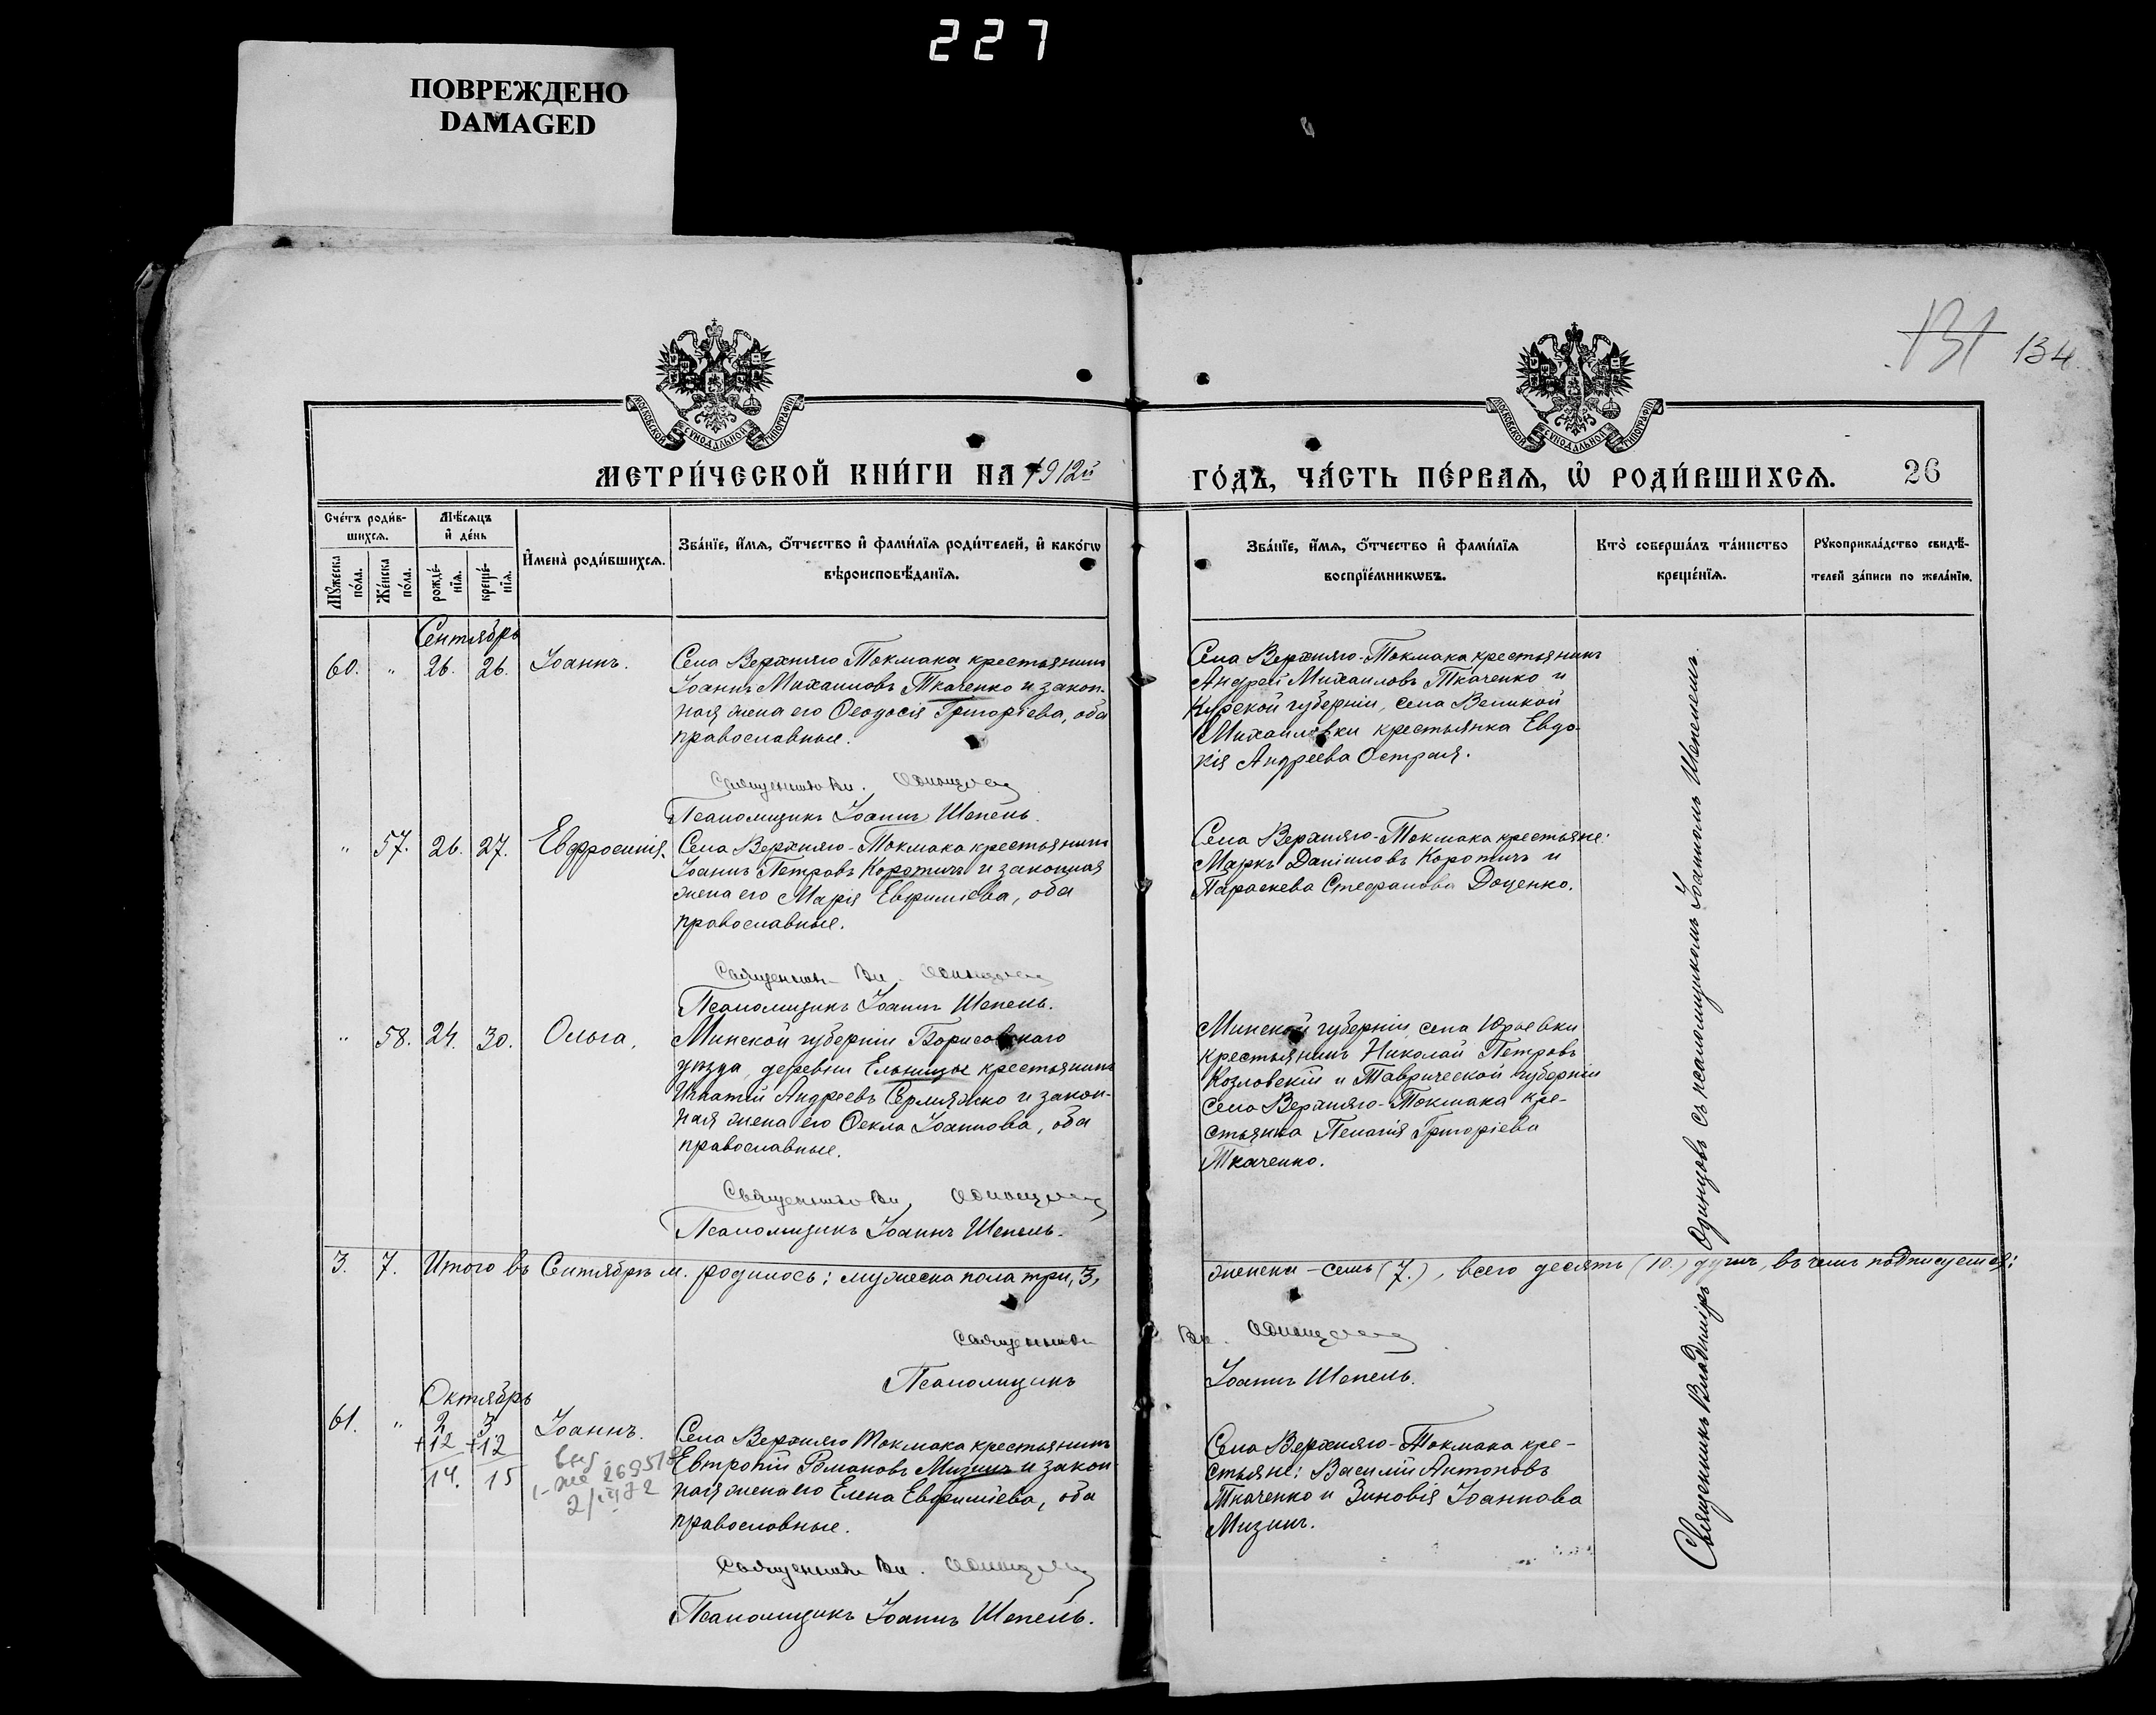 227
ПОВРЕЖДЕНО
DAMAGED
131 134.
МОСКОВСКОЙ СѴНОДАЛЬНОЙ ТИПОГРАФІИ
МОСКОВСКОЙ СѴНОДАЛЬНОЙ ТИПОГРАФІИ
МЕТРИ́ЧЕСКОЙ КНИ́ГИ НА 1912й ГО́ДЪ, ЧА́СТЬ ПЕ́РВАѦ, Ѡ҆ РОДИ́ВШИХСѦ. 26
Сче́тъ роди́в-
шихсѧ.
Мꙋ́жеска по́ла.
Же́нска по́ла.
Мѣ́сѧцъ
и҆ де́нь
рожде́-
нїѧ.
креще́-
нїѧ.
И҆мена̀ роди́вшихсѧ.
Зва́нїе, и҆́мѧ, ѻ҆́тчество и҆ фами́лїѧ роди́телей, и҆ како́гѡ
вѣроисповѣ́данїѧ.
Зва́нїе, и҆́мѧ, ѻ҆́тчество и҆ фами́лїѧ
воспрїе́мникѡвъ.
Кто̀ соверша́лъ та́инство
креще́нїѧ.
Рꙋкоприкла́дство свидѣ́-
телей за́писи по жела́нїю.
Сентябрь
60. " 26. 26. Іоаннъ.
Села Верхняго Токмака крестьянинъ
Іоаннъ Михаиловъ Ткаченко и закон-
ная жена его Ѳеодосія Григоріева, оба
православные.
Священникъ Вл. Одинцовъ
Псаломщикъ Іоаннъ Шепель.
Села Верхняго-Токмака крестьянинъ
Андрей Михаиловъ Ткаченко и
Курской губерніи, села Великой
Михаиловки крестьянка Евдо-
кія Андреева Острая.
" 57. 26. 27. Евфросинія.
Села Верхняго-Токмака крестьянинъ
Іоаннъ Петровъ Коротичъ и законная
жена его Марія Евфиміева, оба
православные.
Священникъ Вл. Одинцовъ
Псаломщикъ Іоаннъ Шепель.
Села Верхняго-Токмака крестьяне:
Маркъ Даніиловъ Коротичъ и
Параскева Стефанова Доценко.
" 58. 24. 30. Ольга.
Минской губерніи Борисовскаго
уѣзда, деревни Ельницы крестьянинъ
Игнатій Андреевъ Сермяжко и закон-
ная жена его Ѳекла Іоаннова, оба
православные.
Священникъ Вл. Одинцовъ
Псаломщикъ Іоаннъ Шепель.
Минской губерніи, села Юрьевки
крестьянинъ Николай Петровъ
Козловскій и Таврической губерніи
села Верхняго-Токмака кре-
стьянка Пелагія Григоріева
Ткаченко.
3. 7. Итого въ Сентябрѣ м. родилось: мужеска пола три, 3, женска – семь (7.), всего десять (10.) душъ, въ чемъ подписуемся:
Священникъ Вл. Одинцовъ
Псаломщикъ Іоаннъ Шепель.
Октябрь
61. " 2 3 Іоаннъ.
+12 +12
14. 15
Села Верхняго Токмака крестьянинъ
Евтропій Романовъ Мизинъ и закон
ная жена его Елена Евфиміева, оба
православные.
Священникъ Вл. Одинцовъ
Псаломщикъ Іоаннъ Шепель.
Села Верхняго-Токмака кре-
стьяне: Василій Антоновъ
Ткаченко и Зиновія Іоаннова
Мизинъ.
Священникъ Владиміръ Одинцовъ съ псаломщикомъ Іоанномъ Шепелемъ.